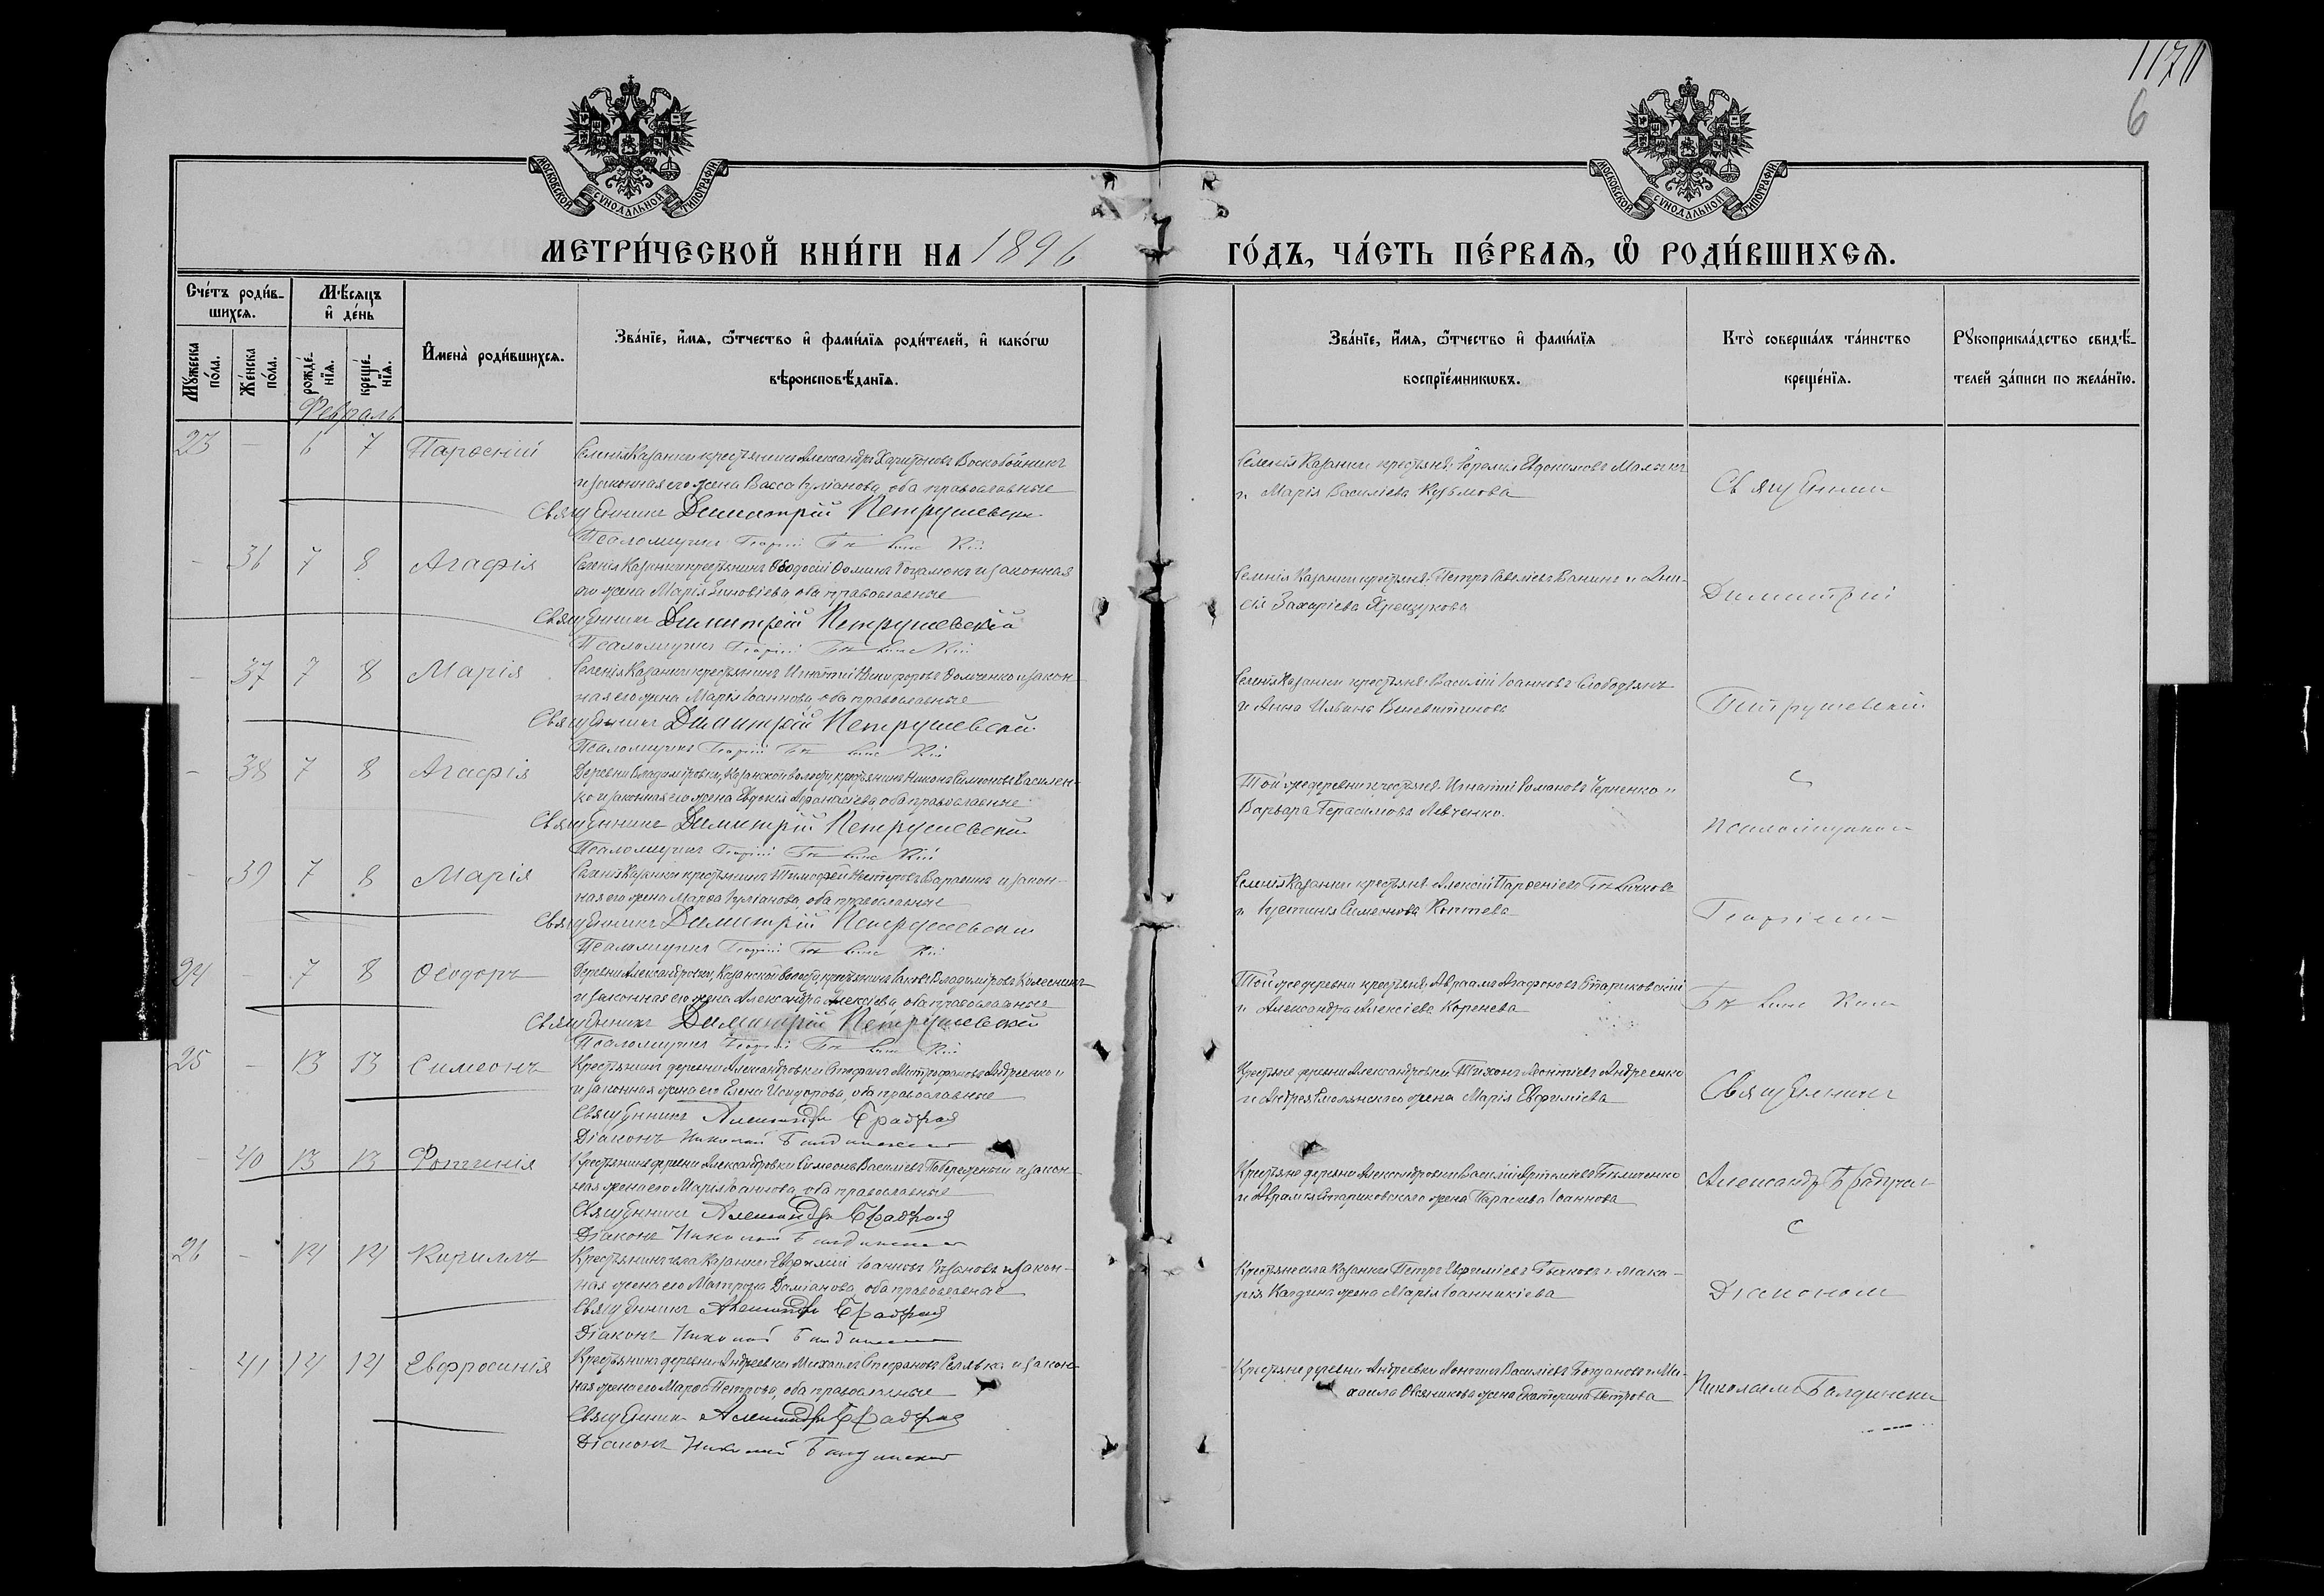 1171
6
МОСКОВСКОЙ СУНОДАЛЬНОЙ ТИПОГРАФІИ
МОСКОВСКОЙ СУНОДАЛЬНОЙ ТИПОГРАФІИ
МЕТРИ́ЧЕСКОЙ КНИ́ГИ НА 1896 ГО́ДЪ, ЧА́СТЬ ПЕ́РВАѦ, Ѽ РОДИ́ВШИХСѦ.
Сче́тъ роди́в-
шихсѧ.
Мꙋ́жеска по́ла.
Же́нска по́ла.
Мѣ́сѧцъ и҆ де́нь
рожде́-нїѧ.
креще́-нїѧ.
И҆мена̀ роди́вшихсѧ.
Зва́нїе, и҆́мѧ, ѻ҆́тчество и҆ фами́лїѧ роди́телей, и҆ како́гѡ
вѣроисповѣ́данїѧ.
Зва́нїе, и҆́мѧ, ѻ҆́тчество и҆ фами́лїѧ
воспрїе́мникѡвъ.
Кто̀ соверша́лъ та́инство
креще́нїѧ.
Рꙋкоприкла́дство свидѣ́-
телей за́писи по жела́нїю.
Февраль
23 - 6 7 Парѳеній Селенія Казанки крестьянинъ Александръ Харитоновъ Воскобойникъ
и законная его жена Васса Іуліанова, оба православные
Священникъ Димитрій Петрушевскій
Псаломщикъ Георгій
Селенія Казанки крестьяне: Іеремія Евдокимовъ
и Марія Василіева Кузьмова
Священник
- 36 7 8 Агафія Селенія Казанки крестьянинъ Ѳеодосій Ѳоминъ и законная
его жена Марія Зиновіева, оба православные
Священникъ Димитрій Петрушевскій
Псаломщикъ Георгій
Селенія Казанки крестьяне: Петръ Савеліевъ Ванинъ и Ани-
сія Захаріева
Димитрій
- 37 7 8 Марія Селенія Казанки крестьянинъ Игнатій Никифоровъ Ѳомченко и закон-
ная его жена Марія Іоаннова, оба православные
Священникъ Димитрій Петрушевскій
Псаломщикъ Георгій
Селенія Казанки крестьяне: Василій Іоанновъ Слободянъ
и Анна Ильина
Петрушевскій
- 38 7 8 Агафія Деревни Владиміровки, Казанской волости, крестьянинъ Никонъ Симоновъ Василен-
ко и законная его жена Евдокія Аѳанасіева, оба православные
Священникъ Димитрій Петрушевскій
Псаломщикъ Георгій
Той же деревни крестьяне: Игнатій Романовъ Черненко и
Варвара Герасимова Левченко.
с
псаломщиком
- 39 7 8 Марія Селенія Казанки крестьянинъ Тимофей Несторовъ и закон-
ная его жена Марѳа Іуліанова, оба православные
Священникъ Димитрій Петрушевскій
Псаломщикъ Георгій
Селенія Казанки крестьяне: Алексій Парѳеніевъ
и Іустинія Симеонова Коптева
Георгіем
24 - 7 8 Ѳеодоръ Деревни Александровки, Казанской волости, крестьянинъ Іаковъ Владиміровъ Колесникъ
и законная его жена Александра Алексіева, оба православные
Священникъ Димитрій Петрушевскій
Псаломщикъ Георгій
Той же деревни крестьяне: Авраамъ Агафоновъ Стариковскій
и Александра Алексіева Коренева
25 - 13 13 Симеонъ Крестьянинъ деревни Александровки Стефанъ Митрофановъ Андреенко и
и законная жена его Елена Исидорова, оба православные
Священникъ Александръ
Діаконъ Николай
Крестьяне деревни Александровки Тихонъ Леонтіевъ Андреенко
и Андрея Смолянскаго жена Марія Евфиміева
Священникъ
- 40 13 13 Фотинія Крестьянинъ деревни Александровки Симеонъ Василіевъ Побережный и закон-
ная жена его Марія Іоаннова, оба православные
Священникъ Александръ
Діаконъ Николай
Крестьяне деревни Александровки Василій
и Аврамія Стариковскаго жена Параскева Іоаннова
Александръ
с
26 - 14 14 Кириллъ Крестьянинъ села Казанки Евфимій Іоанновъ и закон-
ная жена его Матрона Даміанова, оба православные
Священникъ Александръ
Діаконъ Николай
Крестьяне села Казанки Петръ Евфиміевъ Бычковъ и Мака-
рія Калдина жена Марія Іоанникіева
Діакономъ
- 41 14 14 Евфросинія Крестьянинъ деревни Андреевки Михаилъ Стефановъ и закон-
ная жена его Марѳа Петрова, оба православные
Священникъ Александръ
Діаконъ Николай
Крестьяне деревни Андреевки Лонгинъ Василіевъ Богдановъ и Ми-
хаила Овсяникова жена Екатерина Петрова
Николаемъ